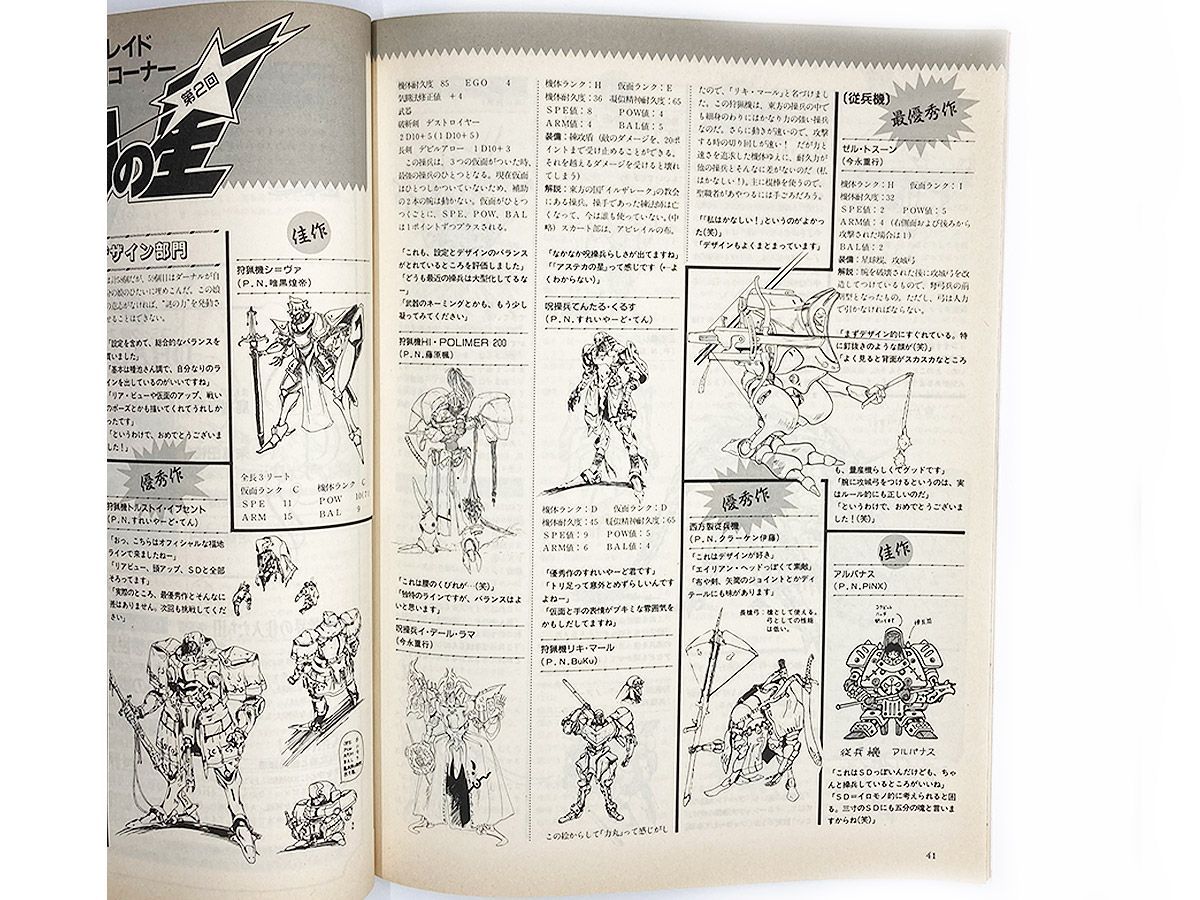 レイド
コーナー
第2回
の星
ザイン部門
せることはできない。
「設定を含めて、総合的なバランスを
「基本は種池さん調で、自分なりのラ
インを出しているのがいいですね」
「リア・ビューや仮面のアップ、戦い
のポーズとかも描いてくれてうれしか
ったです」
「というわけで、おめでとうございま
した！」
優秀作
狩猟機トルストイ・イプセント
(P.N.すれいやーど・てん)
「おっ、こちらはオフィシャルな福地
ラインで来ましたねー」
「リアビュー、頭アップ、SDと全部
そろってます」
「実際のところ、最優秀作とそんなに
差はありません。次回も挑戦してくだ
さい」
佳作
狩猟機シ=ヴァ
(P.N.暗黒煌帝)
全長3リート
仮面ランク C 機体ランク G
SPE 11 POW
ARM 15 BAL 9
機体耐久度 85 EGO 4
気闘法修正値 +4
武器
破斬剣 デストロイヤー
2D10+5(1D10+5)
長剣 デビルアロー 1D10+3
この操兵は、3つの仮面がついた時、
最強の操兵のひとつとなる。現在仮面
はひとつしかついていないため、補助
の2本の腕は動かない。仮面がひとつ
つくごとに、SPE、POW、BAL
は1ポイントずつプラスされる。
「これも、設定とデザインのバランス
がとれているところを評価しました」
「どうも最近の操兵は大型化してるな
ー」
「武器のネーミングとかも、もう少し
凝ってみてください」
狩猟機HI・POLIMER 200
(P.N.藤原楓)
「これは腰のくびれが…(笑)」
「独特のラインですが、バランスはよ
いと思います」
呪操兵イ・デール・ラマ
(今永重行)
機体ランク：H 仮面ランク：E
機体耐久度：36 擬似精神耐久度：65
SPE値：8 POW値：4
ARM値：4 BAL値：5
装備：練攻盾(敵のダメージを、20ポ
イントまで受け止めることができる。
それを越えるダメージを受けると壊れ
てしまう)
解説：東方の国「イルザレーク」の教会
にある操兵。操手であった練法師は亡
くなって、今は誰も使っていない。(中
略) スカート部は、アビレイルの布。
「なかなか呪操兵らしさが出てますね」
「『アステカの星』って感じです(←よ
くわからない)」
呪操兵てんたる・くるす
(P.N.すれいやーど・てん)
機体ランク：D 仮面ランク：D
機体耐久度：45 擬似精神耐久度：65
SPE値：9 POW値：5
ARM値：6 BAL値：4
「優秀作のすれいやーど君です」
「トリ足って意外とめずらしいんです
よねー」
「仮面と手の表情がブキミな雰囲気を
かもしだしてますね」
狩猟機リキ・マール
(P.N.BuKu)
この絵からして「力丸」って感じがし
たので、「リキ・マール」と名づけまし
た。この狩猟機は、東方の操兵の中で
も細身のわりにはかなり力の強い操兵
なのだ。さらに動きが速いので、攻撃
する時の切り回しが速い！ だが力と
速さを追求した機体ゆえに、耐久力が
他の操兵とそんなに差がないのだ(私
はかなしい！)。主に棍棒を使うので、
聖職者があやつるには手ごろだろう。
「『私はかなしい！』というのがよかっ
た(笑)」
「デザインもよくまとまっています」
優秀作
西方製従兵機
(P.N.クラーケン伊藤)
「これはデザインが好き」
「エイリアン・ヘッドっぽくて素敵」
「布や剣、矢筒のジョイントとかディ
テールにも味があります」
長槍弓：槍として使える。
弓としての性能
は低い。
〔従兵機〕
最優秀作
ゼル・トスーン
(今永重行)
機体ランク：H 仮面ランク：I
機体耐久度：32
SPE値：2 POW値：5
ARM値：4 (右側面および後ろから
攻撃された場合は1)
BAL値：2
装備：星球棍、攻城弓
解説：腕を破壊された後に攻城弓を改
造してつけているもので、弩弓兵の前
身型となったもの。ただし、弓は人力
で引かなければならない。
「まずデザイン的にすぐれている。特
に釘抜きのような顔が(笑)」
「よく見ると背面がスカスカなところ
も、量産機らしくてグッドです」
「腕に攻城弓をつけるというのは、実
はルール的にも正しいのだ」
「というわけで、おめでとうございま
した！(笑)」
佳作
アルバナス
(P.N.PINX)
従兵機 アルバナス
「これはSDっぽいんだけども、ちゃ
んと操兵しているところがいいね」
「SD=イロモノ的に考えられると困
る。三寸のSDにも五分の魂と言いま
すからね(笑)」
41